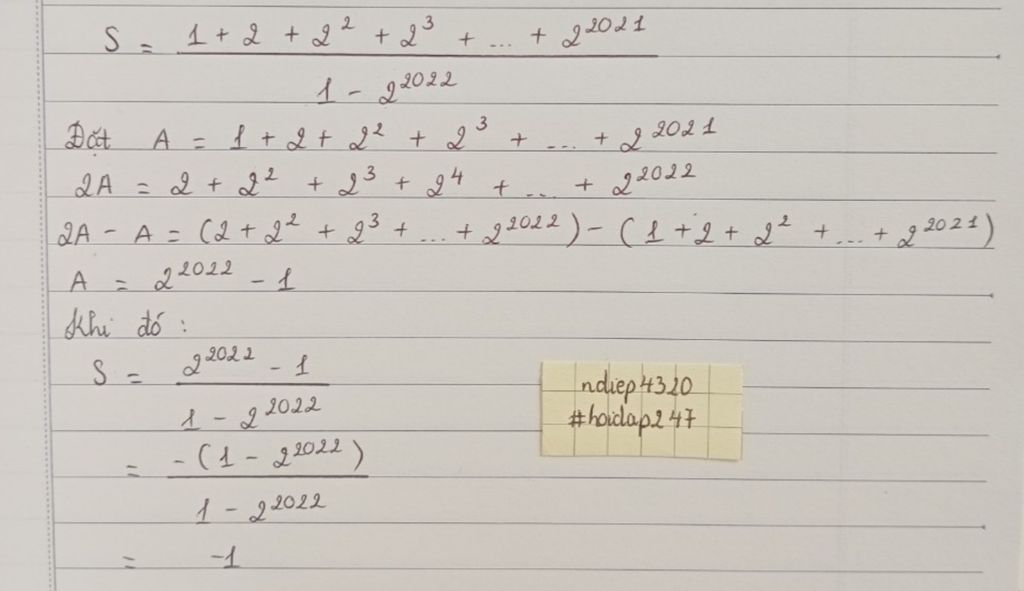 S = \frac{1 + 2 + 2^2 + 2^3 + ... + 2^{2021}}{1 - 2^{2022}}
Đặt A = 1 + 2 + 2^2 + 2^3 + ... + 2^{2021}
2A = 2 + 2^2 + 2^3 + 2^4 + ... + 2^{2022}
2A - A = (2 + 2^2 + 2^3 + ... + 2^{2022}) - (1 + 2 + 2^2 + ... + 2^{2021})
A = 2^{2022} - 1
Khi đó :
S = \frac{2^{2022} - 1}{1 - 2^{2022}}
= \frac{-(1 - 2^{2022})}{1 - 2^{2022}}
= -1
ndiep4320
#hoidap247